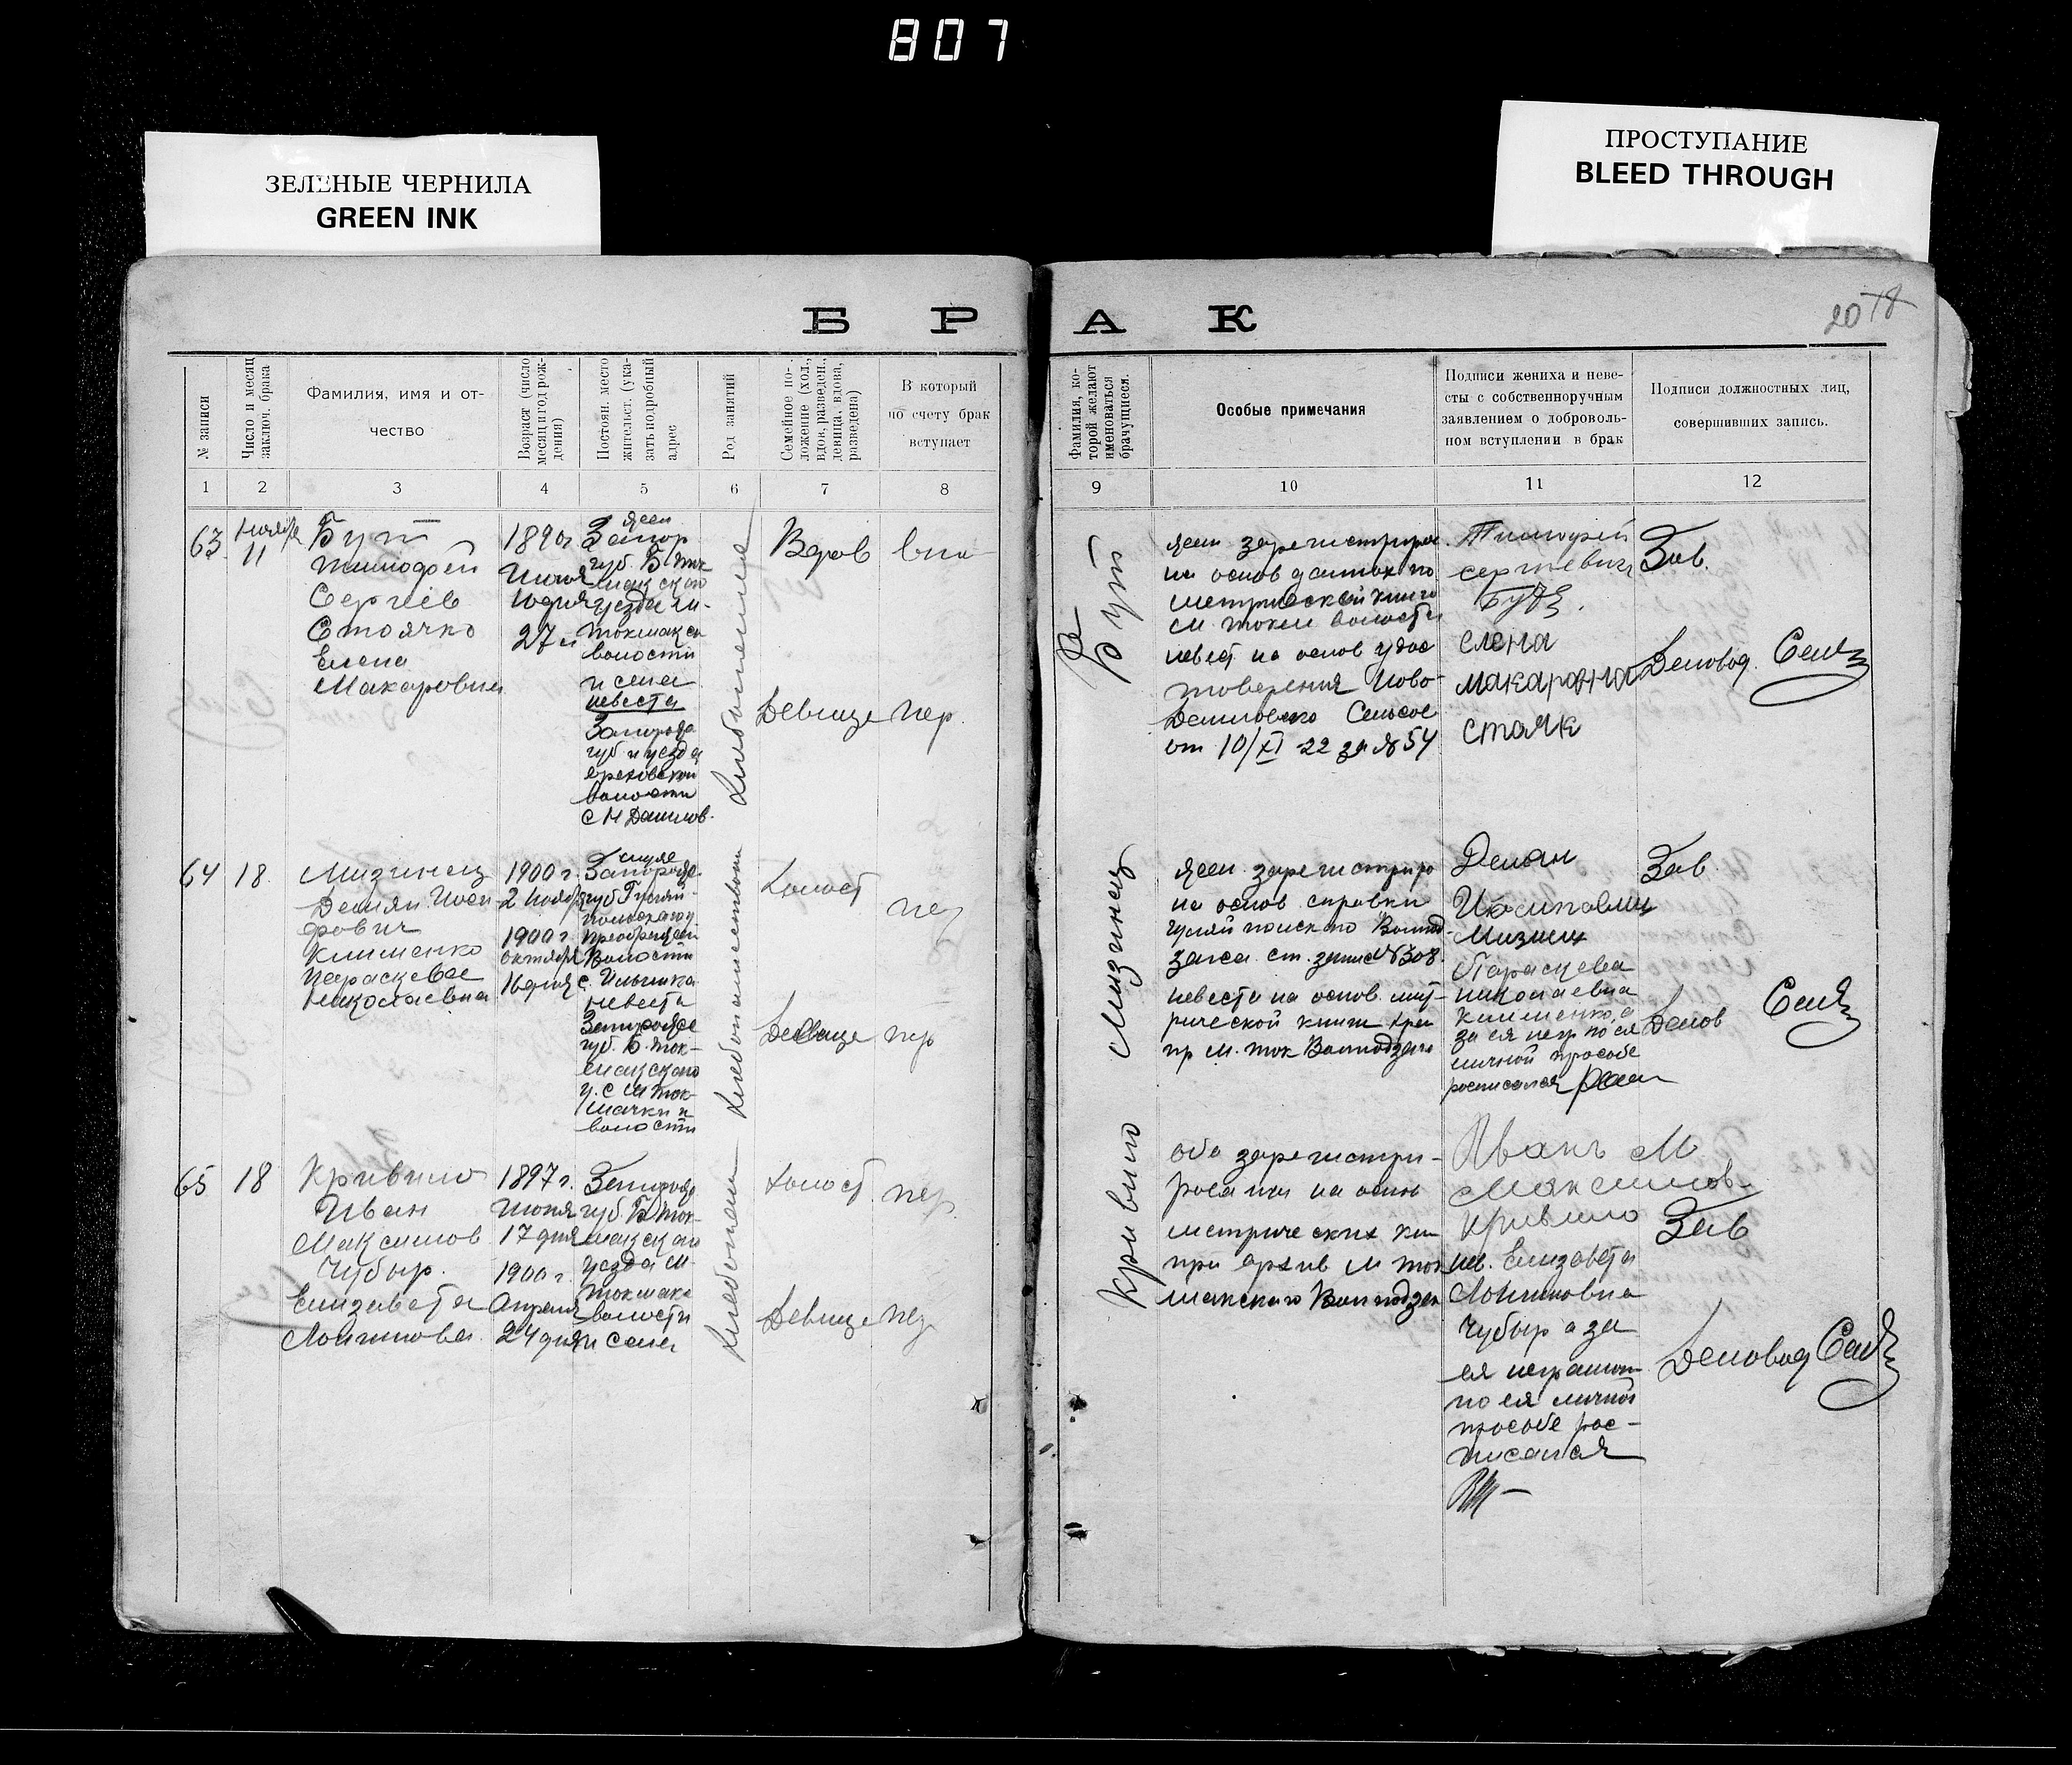 807
ЗЕЛЕНЫЕ ЧЕРНИЛА
GREEN INK
ПРОСТУПАНИЕ
BLEED THROUGH
Б Р А К
20
№ записи
Число и месяц
заключ. брака
Фамилия, имя и от-
чество
Возраст (число
месяц и год рож-
дения)
Постоян. место
жительст. (ука-
зать подробный
адрес
Род занятий
Семейное по-
ложение (хол.,
вдов, разведен.,
девица, вдова,
разведена)
В который
по счету брак
вступает
Фамилия, ко-
торой желают
именоваться
брачущиеся.
Особые примечания
Подписи жениха и неве-
сты с собственноручным
заявлением о доброволь-
ном вступлении в брак
Подписи должностных лиц,
совершивших запись.
1 2 3 4 5 6 7 8 9 10 11 12
63
Ноября
11
Бут
Тимофей
Сергеев
Стоячко
Елена
Макаровна
1890г
Июня
10 дня
27 л
жен
Запор
губ. Б Ток
макского
уезда М-
Токмакск
волости
и села
невеста
Запорож
губ и уезда
Ореховской
волости
с Н Данилов.
Вдов
Девица
пер.
Бут
жен зарегистриров.
на основ данных по
метрической книге
М Токм волости
невест на основ удос
товерения Ново-
Даниловско Сельсов
от 10/XI 22 за № 54
Тимофей
сергевич
Бут
елена
макаровна
стояк
Зав.
Деловод.
64
18
Мизинец
Демян Иоси-
фович
Клименко
Параскева
Николаевна
1900 г.
2 Ноября
1900 г
октября
16 дня
жених
Запорож.
губ Гуляй-
польского у
Преображен
Волости
с. Ильинка
невеста
Запорож
губ. Б. Ток-
макского
у. с М Ток-
мачки и
волости
Холост
Девица
пер
пер
Мизинец
жен. зарегистриро
на основ справки
Гуляйпольского Волгод.
загса. ст. запис № 308.
невеста на основ. мет-
рической книги хран
пр М. Ток Волгодзаги
Демян
Мизинец
Параскева
николаевна
клименко, а
за ея негр по ея
личной просьбе
росписался
Зав.
Делов
65
18
Кривило
Иван
Максимов
Чубыр.
Елизавета
Лонгинова
1897 г.
Июня
17 дня
1900 г
Апреля
24 дня
Запорож
губ Б Ток-
макского
уезда М-
Токмакс
волости
и села
Холост
Девица
пер.
пер
Кривило
оба зарегистри-
рованы на основ
метрических кни
при архив М Ток
макского Волгодзаг
Иванъ М
Максимов-
Кривило
нев. Елизавета
Лонгиновна
Чубыр а за
ея неграмот
по ея личной
просьбе рос-
писался
Зав
Деловод